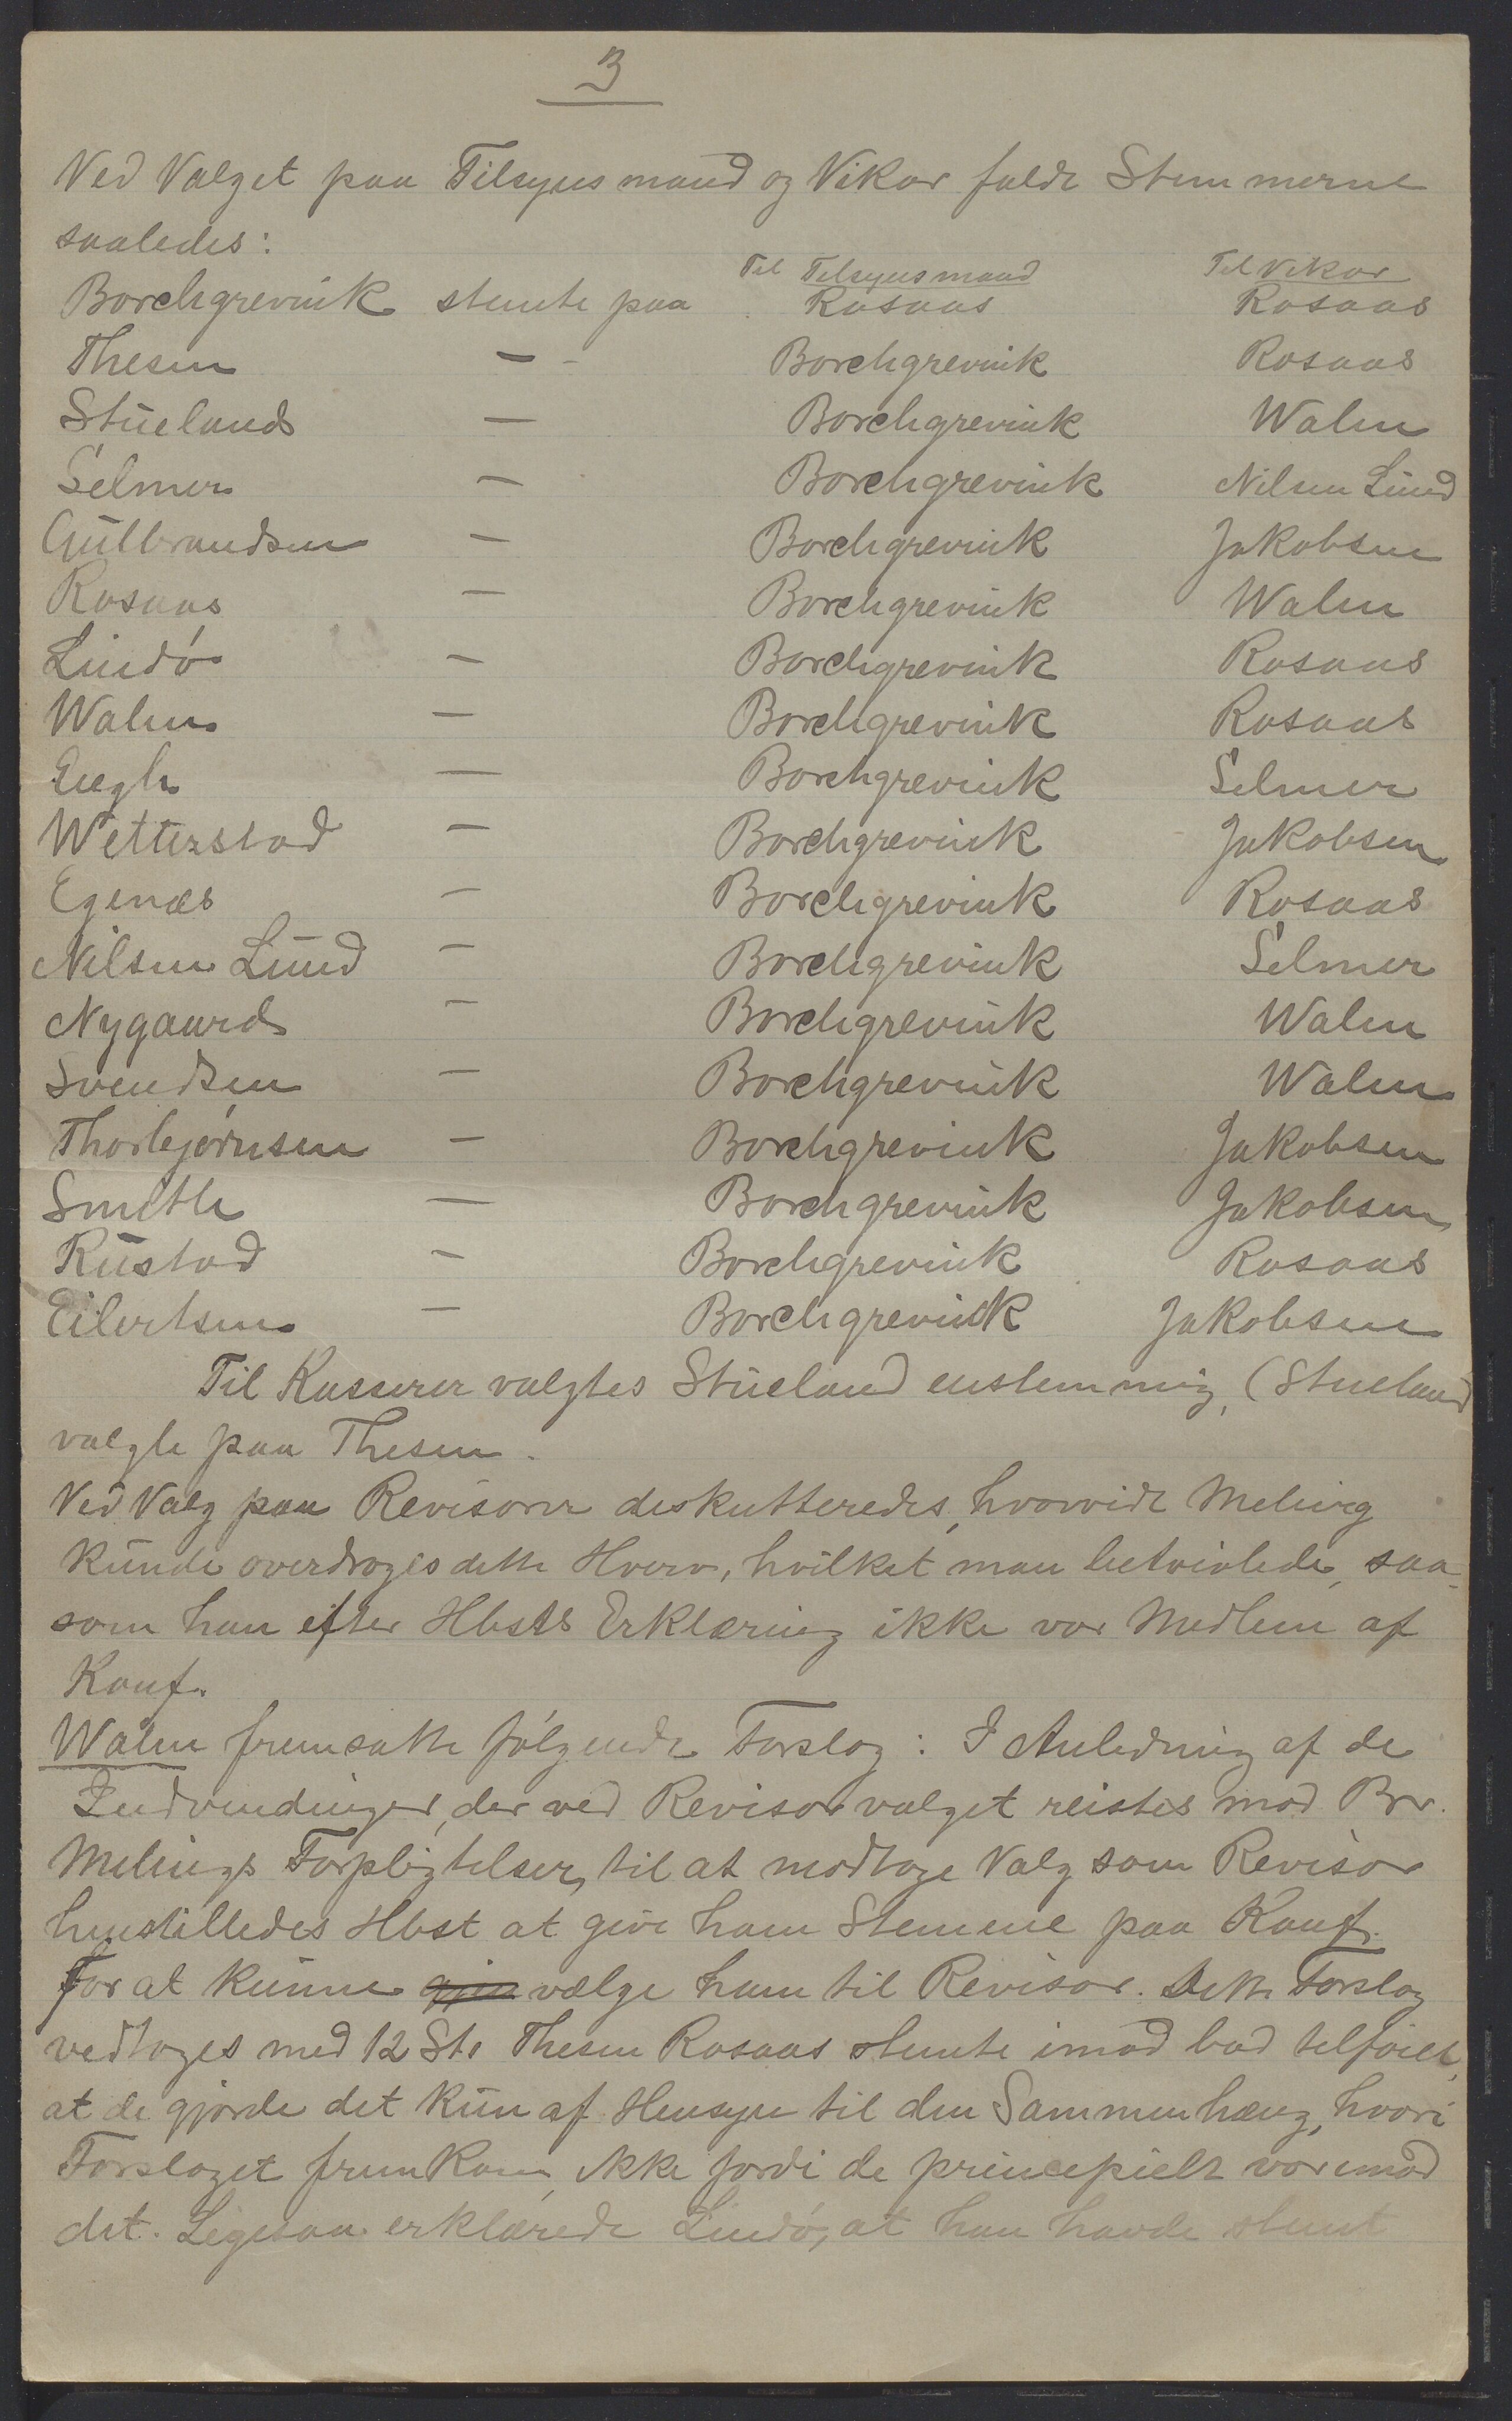 3
Ved Valget paa Tilsynsmand og Vikar faldt Stemmerne
saaledes:
Til Tilsynsmand Til Vikar
Borchgrevink stemte paa Rosaas Rosaas
Thesen — Borchgrevink Rosaas
Stueland — Borchgrevink Walen
Selmer — Borchgrevink Nilsen Lund
Gulbrandsen — Borchgrevink Jakobsen
Rosaas — Borchgrevink Walen
Lindø — Borchgrevink Rosaas
Walen — Borchgrevink Rosaas
Engh — Borchgrevink Selmer
Wetterstad — Borchgrevink Jakobsen
Egenæs — Borchgrevink Rosaas
Nilsen Lund — Borchgrevink Selmer
Nygaard — Borchgrevink Walen
Svendsen — Borchgrevink Walen
Thorbjørnsen — Borchgrevink Jakobsen
Smith — Borchgrevink Jakobsen
Rustad — Borchgrevink Rosaas
Eilertsen — Borchgrevink Jakobsen
Til Kasserer valgtes Stueland enstemmig, (Stueland
valgte paa Thesen.
Ved Valg paa Revisorer diskutteredes, hvorvidt Meling
kunde overdrages dette Hverv, hvilket man betvivlede, saa-
som han efter Hbsts Erklæring ikke var Medlem af
Konf.
Walen fremsatte følgende Forslag: I Anledning af de
Indvendinger, der ved Revisorvalget reistes mod Br.
Melings Forpligtelser, til at modtage Valg som Revisor
henstilledes Hbst at give ham Stemme paa Konf.
for at kunne gjen vælge ham til Revisor. Dette Forslag
vedtoges med 12 St. Thesen Rosaas stemte imod bad tilføiet,
at de gjorde det kun af Hensyn til den Sammenhæng, hvori
Forslaget fremkom, ikke fordi de principielt var imod
det. Ligesaa erklærede Lindø, at han havde stemt